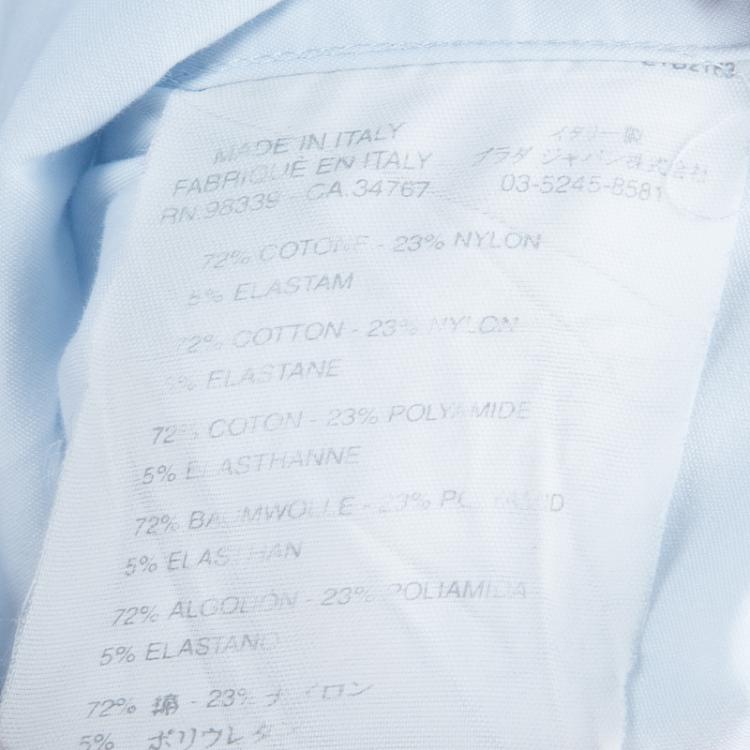 MADE IN ITALY
FABRIQUÉ EN ITALY
RN.98339 - CA.34767
イタリー製
プラダ ジャパン株式会社
03-5245-8581
72% COTONE - 23% NYLON
5% ELASTAM
72% COTTON - 23% NYLON
5% ELASTANE
72% COTON - 23% POLYAMIDE
5% ELASTHANNE
72% BAUMWOLLE - 23% POLYAMID
5% ELASTHAN
72% ALGODÓN - 23% POLIAMIDA
5% ELASTANO
72% 綿 - 23% ナイロン
5% ポリウレタン